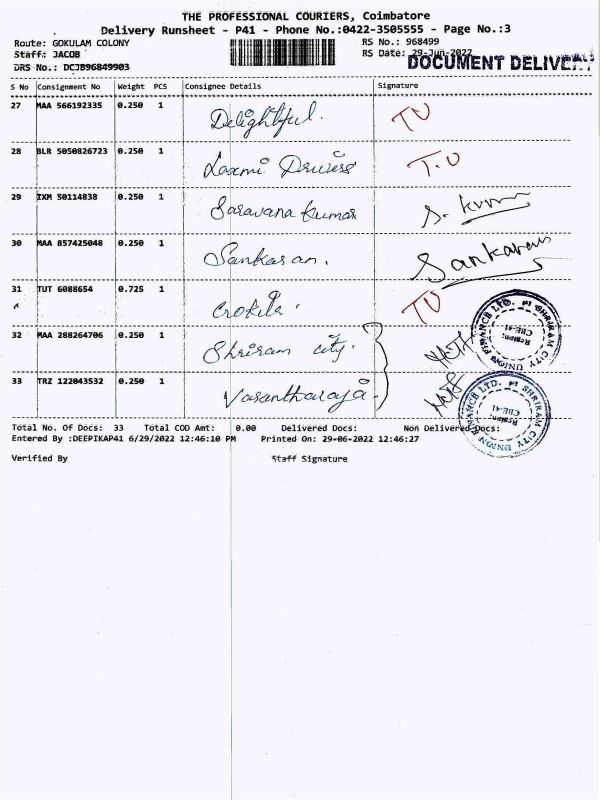 THE PROFESSIONAL COURIERS, Coimbatore
Delivery Runsheet - P41 - Phone No.:0422-3505555 - Page No.:3
Route: GOKULAM COLONY RS No.: 968499
Staff: JACOB RS Date: 29-Jun-2022
DRS No.: DCJB96849903 DOCUMENT DELIVE
S No Consignment No Weight PCS Consignee Details Signature
27 MAA 566192335 0.250 1 Delightful. TU
28 BLR 5050826723 0.250 1 Laxmi T.U
29 IXM 50114838 0.250 1 Saravana Kumar S. Kumar
30 MAA 857425048 0.250 1 Sankaran. Sankaran
31 TUT 6088654 0.725 1 Crokila. TU
32 MAA 288264706 0.250 1 Shriram city.
33 TRZ 122043532 0.250 1 Vasantharaja.
SHRIRAM CITY UNION FINANCE LTD.
Region: CBE-41
SHRIRAM CITY UNION FINANCE LTD.
Region: CBE-41
Total No. Of Docs: 33 Total COD Amt: 0.00 Delivered Docs: Non Delivered Docs:
Entered By :DEEPIKAP41 6/29/2022 12:46:10 PM Printed On: 29-06-2022 12:46:27
Verified By Staff Signature